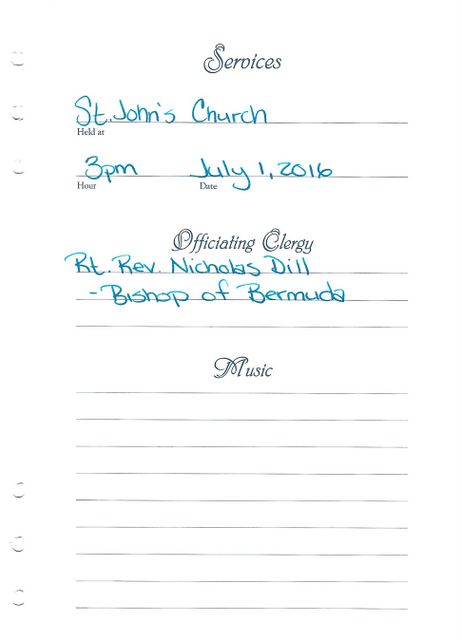 Services
St. John's Church
Held at
3pm July 1, 2016
Hour Date
Officiating Clergy
Rt. Rev. Nicholas Dill
- Bishop of Bermuda
Music